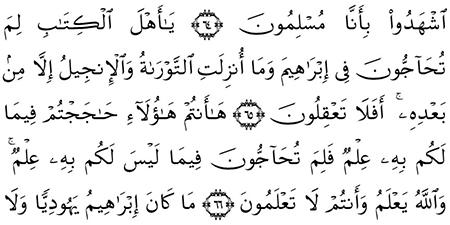 ٱشْهَدُوا۟ بِأَنَّا مُسْلِمُونَ ۝٦٤ يَـٰٓأَهْلَ ٱلْكِتَـٰبِ لِمَ
تُحَآجُّونَ فِىٓ إِبْرَٰهِيمَ وَمَآ أُنزِلَتِ ٱلتَّوْرَىٰةُ وَٱلْإِنجِيلُ إِلَّا مِنۢ
بَعْدِهِۦٓ ۚ أَفَلَا تَعْقِلُونَ ۝٦٥ هَـٰٓأَنتُمْ هَـٰٓؤُلَآءِ حَـٰجَجْتُمْ فِيمَا
لَكُم بِهِۦ عِلْمٌ فَلِمَ تُحَآجُّونَ فِيمَا لَيْسَ لَكُم بِهِۦ عِلْمٌ ۚ
وَٱللَّهُ يَعْلَمُ وَأَنتُمْ لَا تَعْلَمُونَ ۝٦٦ مَا كَانَ إِبْرَٰهِيمُ يَهُودِيًّا وَلَا